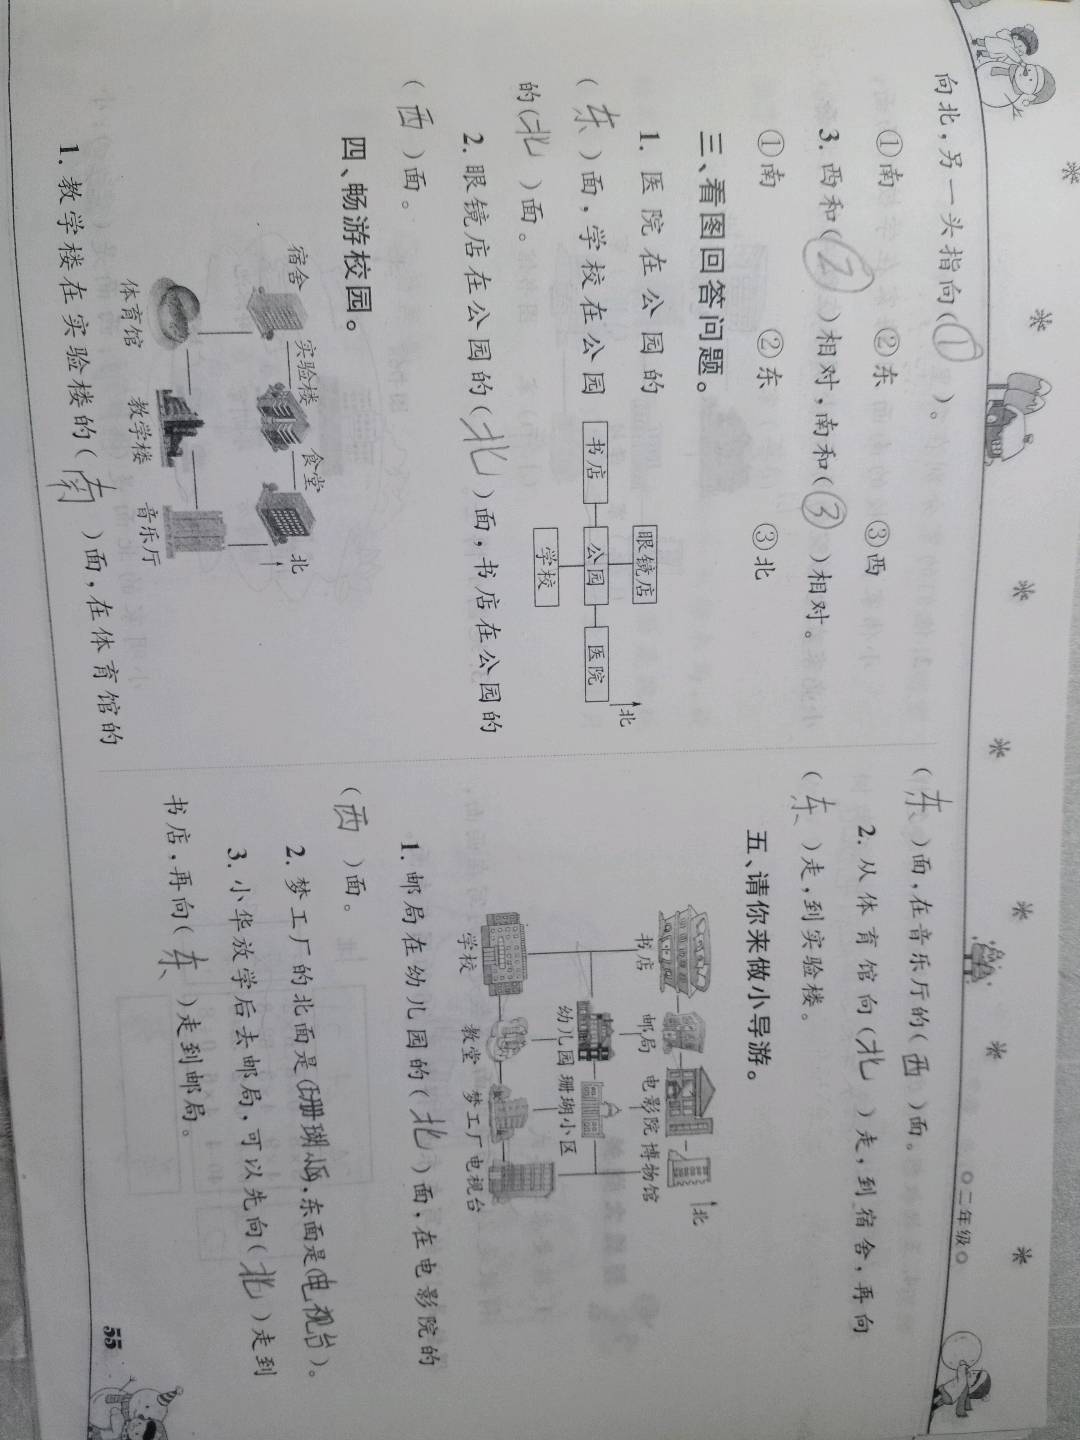 向北，另一头指向(①)。
①南 ②东 ③西
3. 西和(②)相对，南和(③)相对。
①南 ②东 ③北
三、看图回答问题。
1. 医院在公园的
(东)面，学校在公园
的(北)面。
书店 公园 医院
眼镜店
学校
北
2. 眼镜店在公园的(北)面，书店在公园的
(西)面。
四、畅游校园。
宿舍 实验楼 食堂 北
体育馆 教学楼 音乐厅
1. 教学楼在实验楼的(南)面，在体育馆的
(东)面，在音乐厅的(西)面。
2. 从体育馆向(北)走，到宿舍，再向
(东)走，到实验楼。
五、请你来做小导游。
书店 邮局 电影院 博物馆 北
幼儿园 珊瑚小区
学校 教堂 梦工厂 电视台
1. 邮局在幼儿园的(北)面，在电影院的
(西)面。
2. 梦工厂的北面是(珊瑚小区)，东面是(电视台)。
3. 小华放学后去邮局，可以先向(北)走到
书店，再向(东)走到邮局。
○二年级○
55